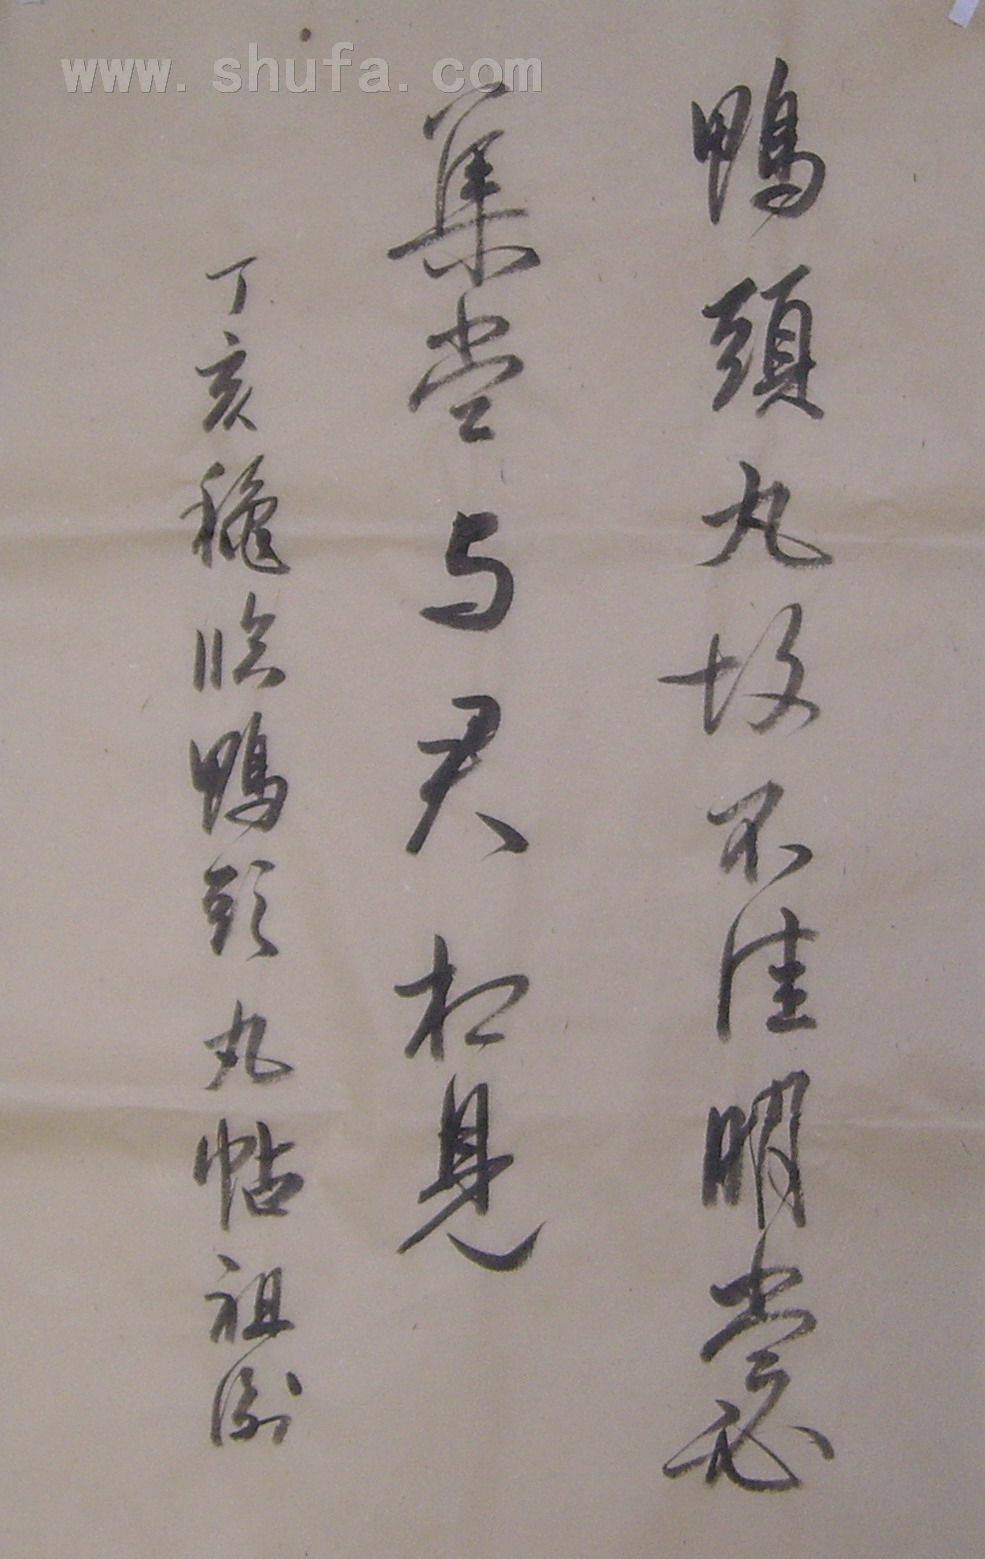 www.shufa.com
鴨頭丸故不佳明當必
集當与君相見
丁亥穐臨鴨頭丸帖祖